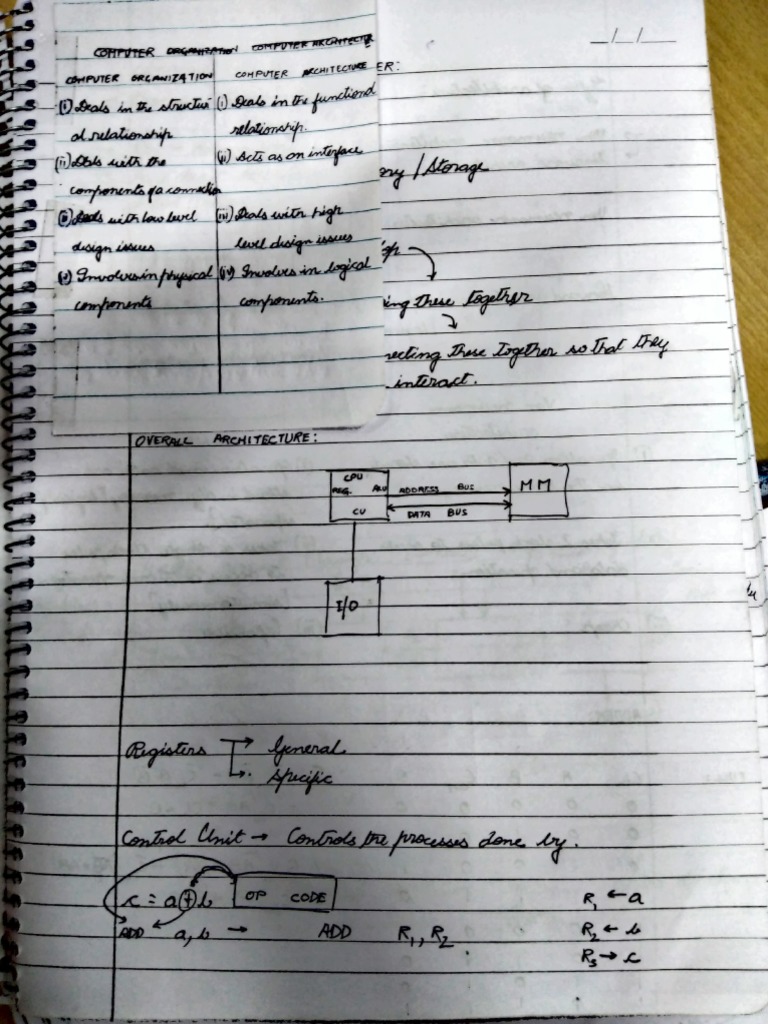 COMPUTER ORGANIZATION COMPUTER ARCHITECTUR
COMPUTER ORGANIZATION
(i) Deals in the structur
al relationship
(ii) Deals with the
components of a connection
(iii) Deals with low level
design issues
Involves in physical
components
COMPUTER ARCHITECTURE
(i) Deals in the functional
relationship.
(ii) Acts as an interface
(iii) Deals with high
level design issues
(iv) Involves in logical
components.
_/_/_
ER:
ory / Storage
op
ing these together
necting these together so that they
interact.
OVERALL ARCHITECTURE:
CPU
REG. ALU
CU
ADDRESS BUS
DATA BUS
MM
I/O
Registers → General
→ Specific
Control Unit → Controls the processes done by.
c = a + b OP CODE
ADD a, b → ADD R₁, R₂
R₁ ← a
R₂ ← b
R₃ → c